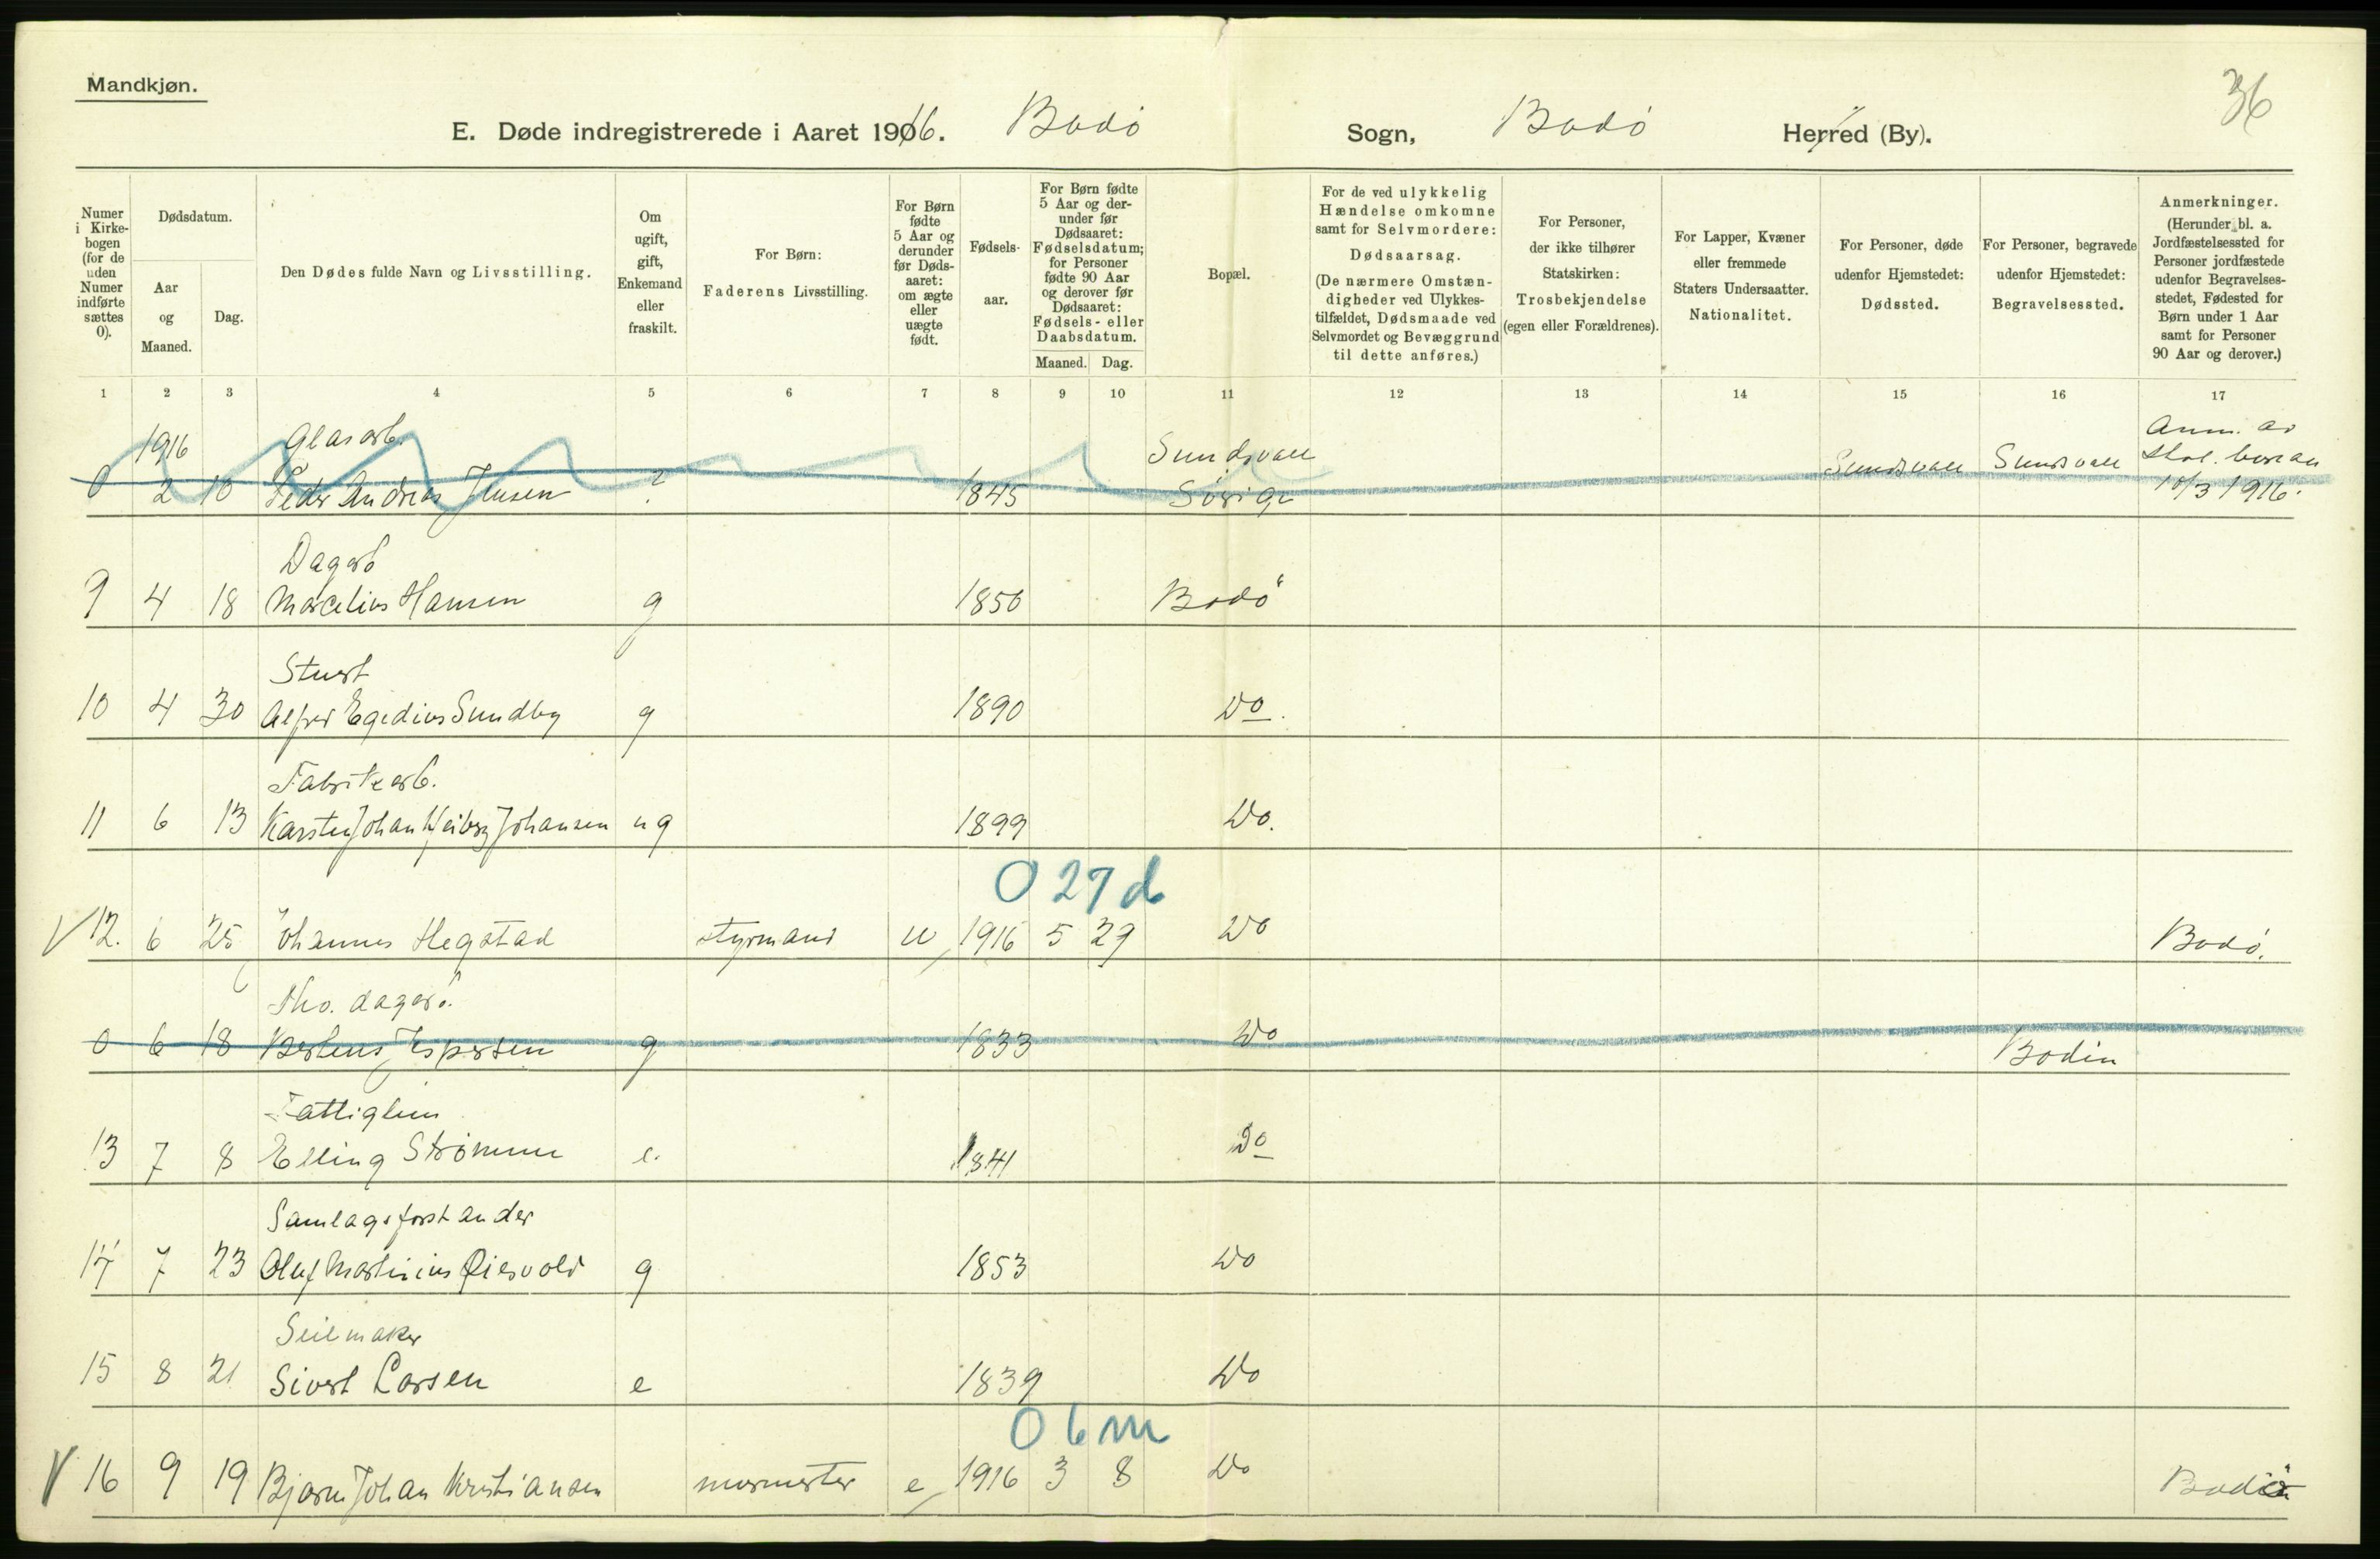 Mandkjøn.
36
E. Døde indregistrerede i Aaret 1916. Bodø Sogn, Bodø Herred (By).
Numer i Kirkebogen (for de uden Numer indførte sættes 0).
Dødsdatum.
Aar og Maaned.
Dag.
Den Dødes fulde Navn og Livsstilling.
Om ugift, gift, Enkemand eller fraskilt.
For Børn: Faderens Livsstilling.
For Børn fødte 5 Aar og derunder før Dødsaaret: om ægte eller uægte født.
Fødselsaar.
For Børn fødte 5 Aar og derunder før Dødsaaret: Fødselsdatum; for Personer fødte 90 Aar og derover før Dødsaaret: Fødsels- eller Daabsdatum.
Maaned. Dag.
Bopæl.
For de ved ulykkelig Hændelse omkomne samt for Selvmordere: Dødsaarsag. (De nærmere Omstændigheder ved Ulykkestilfældet, Dødsmaade ved Selvmordet og Bevæggrund til dette anføres.)
For Personer, der ikke tilhører Statskirken: Trosbekjendelse (egen eller Forældrenes).
For Lapper, Kvæner eller fremmede Staters Undersaatter. Nationalitet.
For Personer, døde udenfor Hjemstedet: Dødssted.
For Personer, begravede udenfor Hjemstedet: Begravelsessted.
Anmerkninger. (Herunder bl. a. Jordfæstelsessted for Personer jordfæstede udenfor Begravelsesstedet, Fødested for Børn under 1 Aar samt for Personer 90 Aar og derover.)
1 2 3 4 5 6 7 8 9 10 11 12 13 14 15 16 17
1916 Glasarb. Sundsvall Anm. av
0 2 10 Peder Andreas Jensen ? 1845 Sverige Sundsvall Sundsvall 10/3 1916.
Dagarb
9 4 18 Marcelius Hansen g 1850 Bodø
Stuert
10 4 30 Alfred Egedius Sundby g 1890 Do.
Fabrikarb.
11 6 13 Karsten Johan Heiberg Johansen ug 1899 Do.
0 27 d
V 12. 6 25 Johannes Hegstad styrmand u 1916 5 29 Do Bodø.
fho. dagarb.
0 6 18 Jespersen g 1833 Do Bodin
Fattiglem
13 7 8 Elling Strømme e. 1841 Do
Samlagsforstander
14 7 23 Oluf Martinius Qiesvold g 1853 Do
Seilmaker
15 8 21 Sivert Larsen e 1839 Do
0 6 m
V 16 9 19 Bjarne Johan Kristiansen murmester e 1916 3 8 Do Bodø